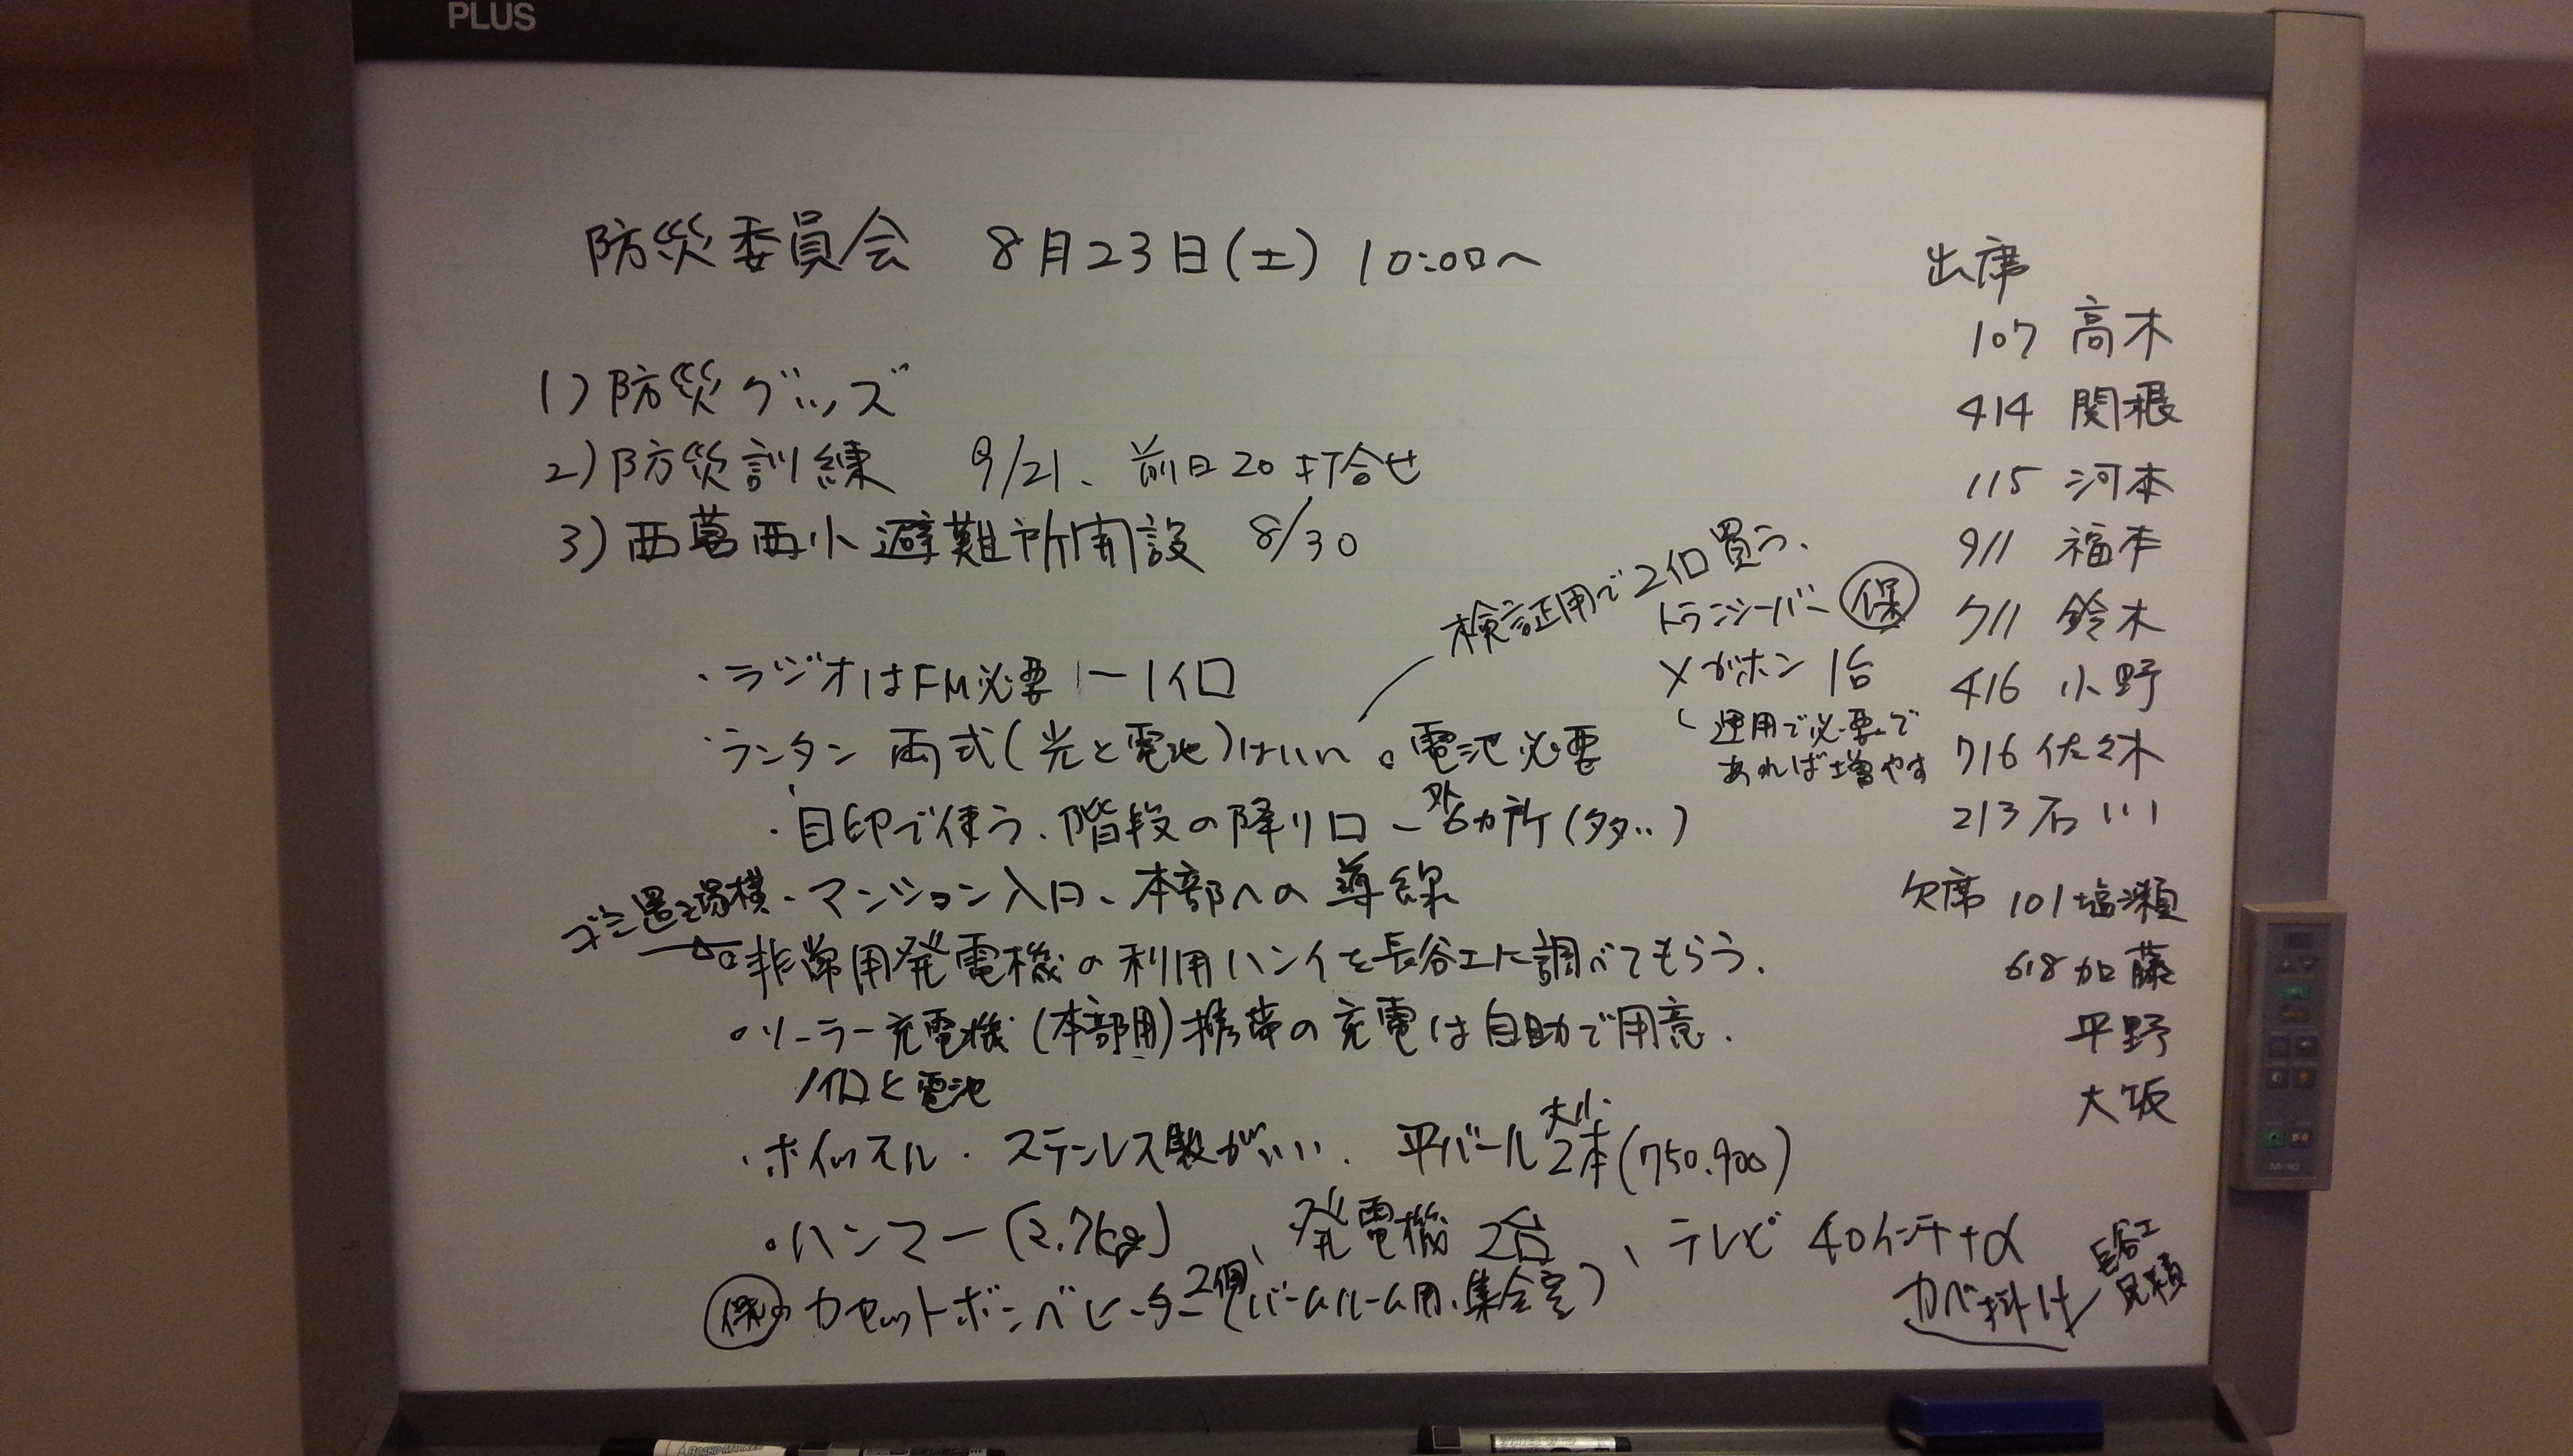 PLUS
防災委員会 8月23日(土) 10:00〜
1)防災グッズ
2)防災訓練 9/21、前日20打合せ
3)西葛西小避難所開設 8/30
検証用で2個買う、
・ラジオはFM必要 1個
・ランタン 両式(光と電池)はいい 。電池必要
・目印で使う、階段の降り口 6カ所
ゴミ置き場横
・マンション入口、本部への導線
・非常用発電機の利用ハンイを長谷工に調べてもらう.
・ソーラー充電機(本部用)携帯の充電は自助で用意.
1個と電池
・ホイッスル・ステンレス製がいい. 平バール 大小 2本(750.900)
・ハンマー(2.7kg)、発電機 2台 、テレビ 40インチ+α
カベ掛け
長谷工
見積
保 ・カセットボンベヒーター 2個(パームルーム用、集会室)
トランシーバー 保
メガホン 1台
運用で必要で
あれば増やす
出席
107 高木
414 関根
115 河本
911 福本
711 鈴木
416 小野
716 佐々木
213 石川
欠席 101 塩瀬
618 加藤
平野
大坂